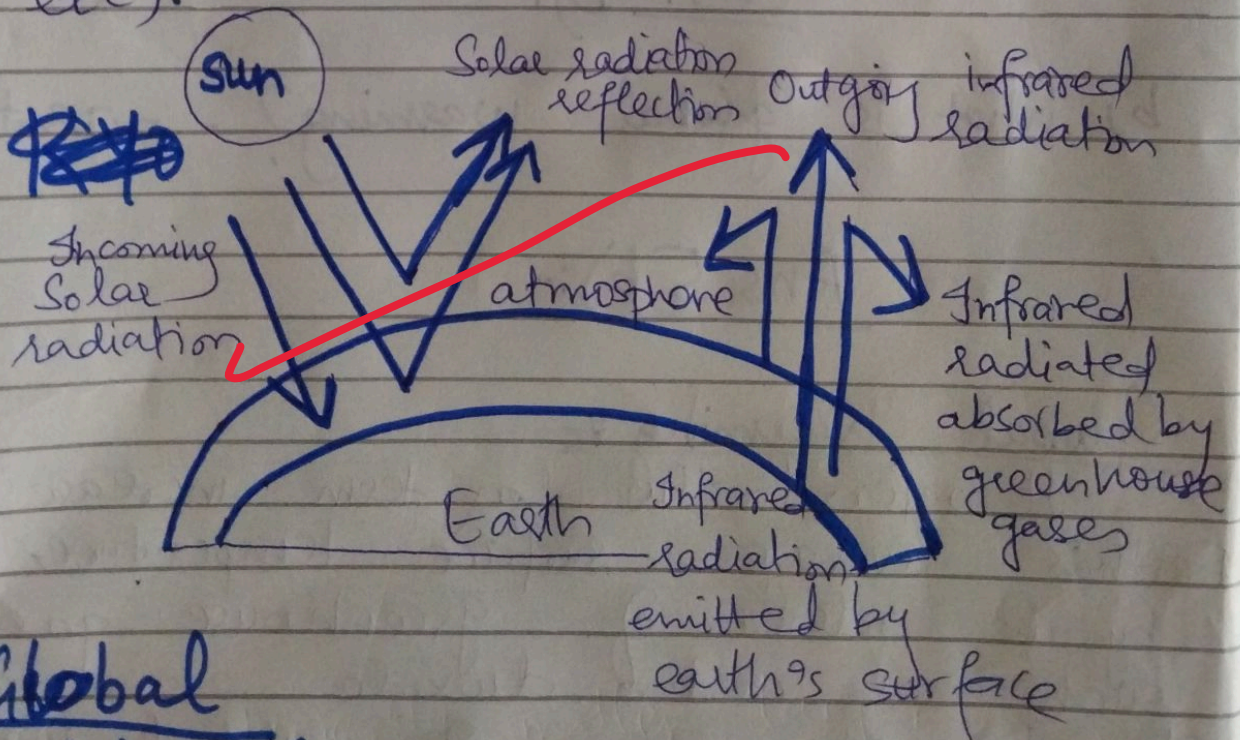 etc).
Sun
Solar radiation
reflection
Outgoing infrared
radiation
Incoming
Solar
radiation
atmosphere
Infrared
radiated
absorbed by
greenhouse
gases
Earth
Infrared
radiation
emitted by
earth's surface
Global